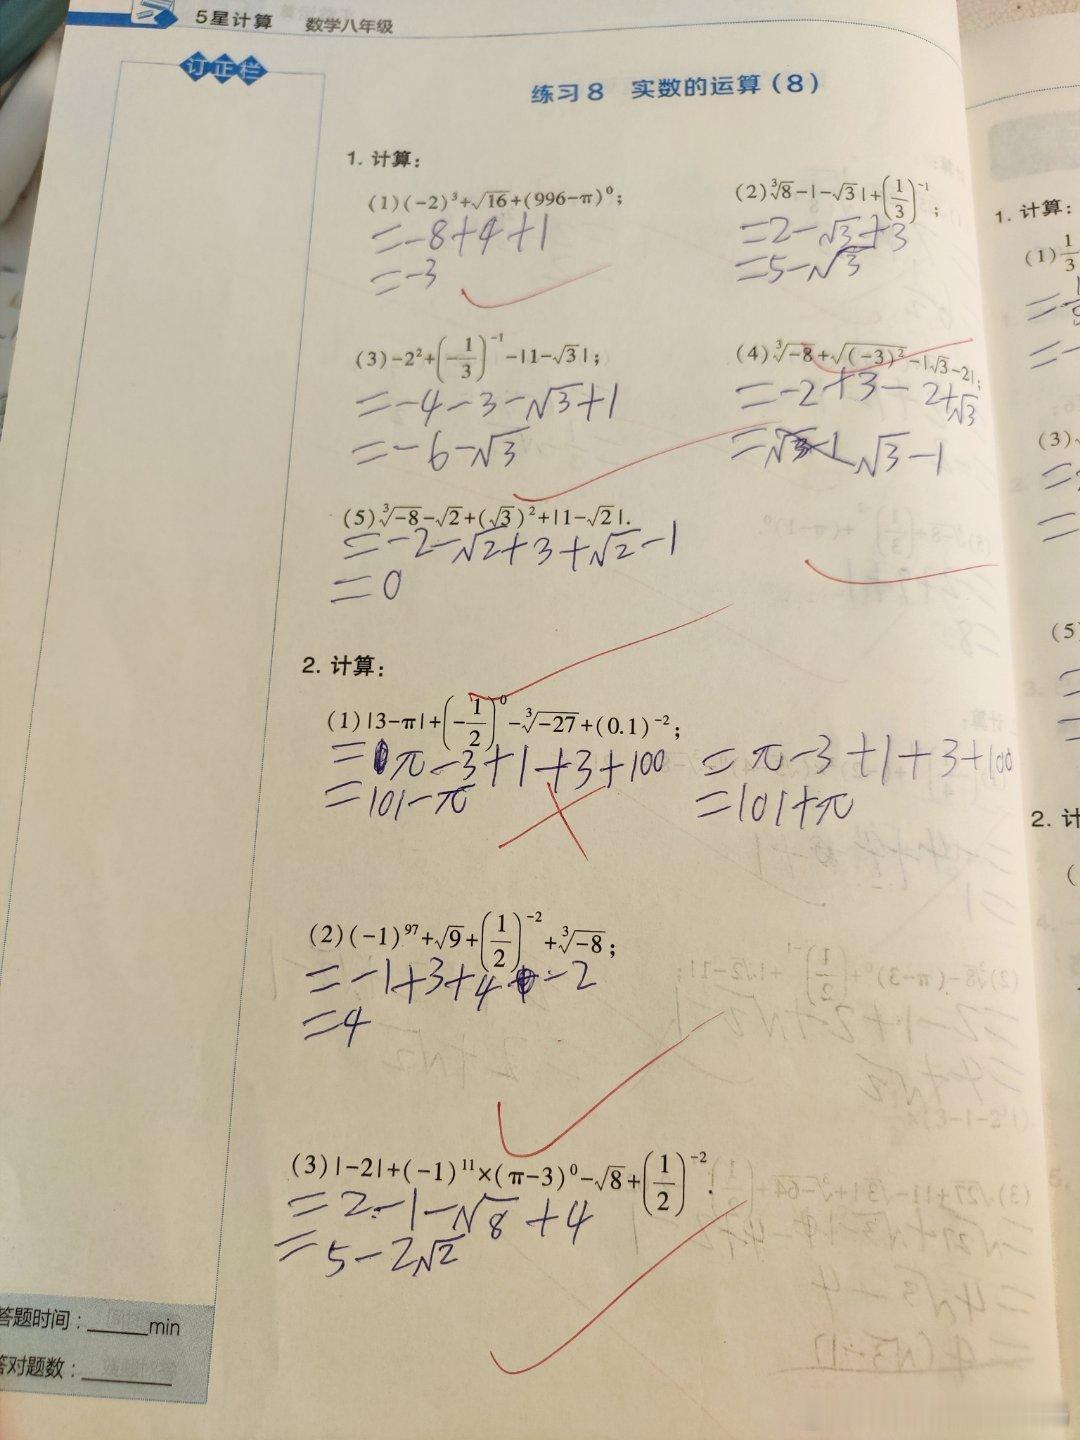 5星计算 数学八年级
订正栏
练习8 实数的运算(8)
1. 计算:
(1)(-2)³+√16+(996-π)⁰;
=-8+4+1
=-3
(2)³√8-|-√3|+(1/3)⁻¹;
=2-√3+3
=5-√3
(3)-2²+(-1/3)⁻¹-|1-√3|;
=-4-3-√3+1
=-6-√3
(4)³√-8+√(-3)²-|√3-2|;
=-2+3-2+√3
=√3-1
(5)³√-8-√2+(√3)²+|1-√2|.
=-2-√2+3+√2-1
=0
2. 计算:
(1)|3-π|+(-1/2)⁰-³√-27+(0.1)⁻²;
=π-3+1+3+100
=101-π
=π-3+1+3+100
=101+π
(2)(-1)⁹⁷+√9+(1/2)⁻²+³√-8;
=-1+3+4-2
=4
(3)|-2|+(-1)¹¹×(π-3)⁰-√8+(1/2)⁻².
=2-1-√8+4
=5-2√2
答题时间:______min
答对题数:______
1. 计算:
(1)1/3
=
=-
(3)
=
=
(5
=
=
2. 计
(